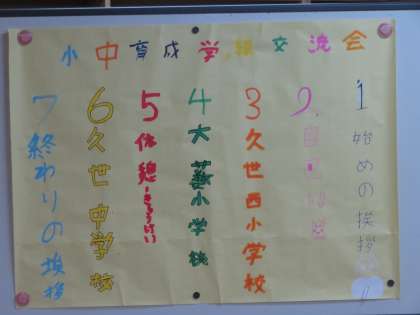 小中育成学級交流会
1 始めの挨拶
2. 自己紹介
3 久世西小学校
4 大薮小学校
5 休憩
6 久世中学校
7 終わりの挨拶